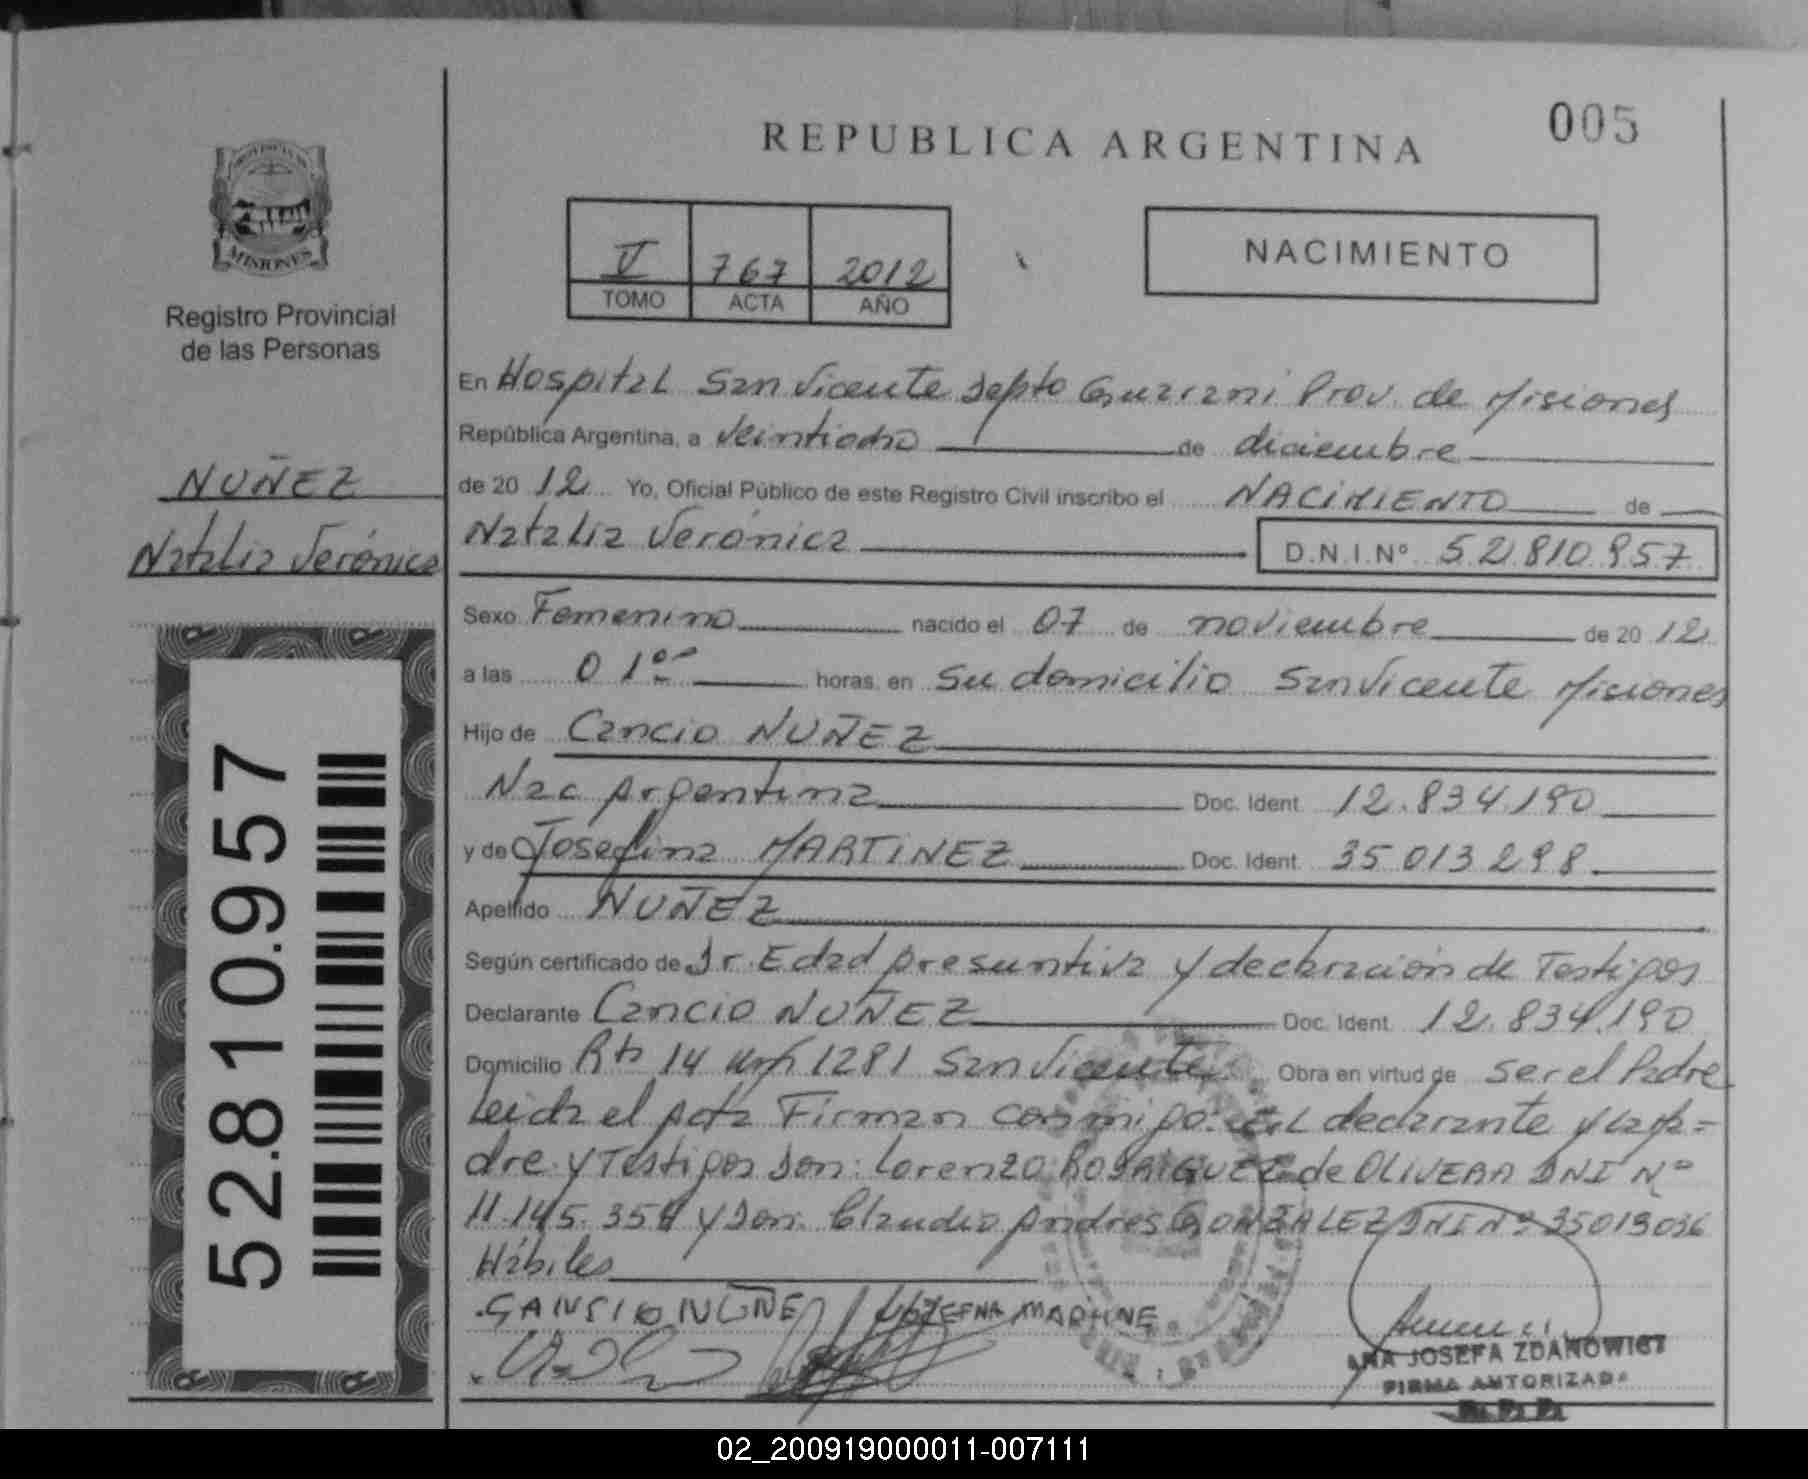 005
REPUBLICA ARGENTINA
PROVINCIA DE
MISIONES
Registro Provincial
de las Personas
V 767 2012
TOMO ACTA AÑO
NACIMIENTO
NUÑEZ
Natalia Verónica
52.810.957
En Hospital San Vicente Depto Guaraní Prov. de Misiones
República Argentina, a veintiocho de diciembre
de 20 12 Yo, Oficial Público de este Registro Civil inscribo el NACIMIENTO de
Natalia Verónica D.N.I.Nº 52.810.957
Sexo Femenino nacido el 07 de noviembre de 20 12
a las 01 00 horas, en su domicilio San Vicente Misiones
Hijo de Cancio NUÑEZ
Nac Argentina Doc. Ident. 12.834.190
y de Josefina MARTINEZ Doc. Ident. 35 013 298
Apellido NUÑEZ
Según certificado de Dr. Edad presuntiva y declaración de Testigos
Declarante Cancio NUÑEZ Doc. Ident. 12.834.190
Domicilio Rta 14 km 1281 San Vicente Obra en virtud de ser el Padre
Leida el Acta Firman conmigo: EL declarante y la pa=
dre y Testigos Don: Lorenzo RODRIGUEZ de OLIVERA DNI Nº
11.145.354 y Don: Claudio Andres GONZALEZ DNI Nº 35013036
Hábiles
CANSIO NUÑE
ANA JOSEFA ZDANOWICT
FIRMA AUTORIZADA
02_200919000011-007111